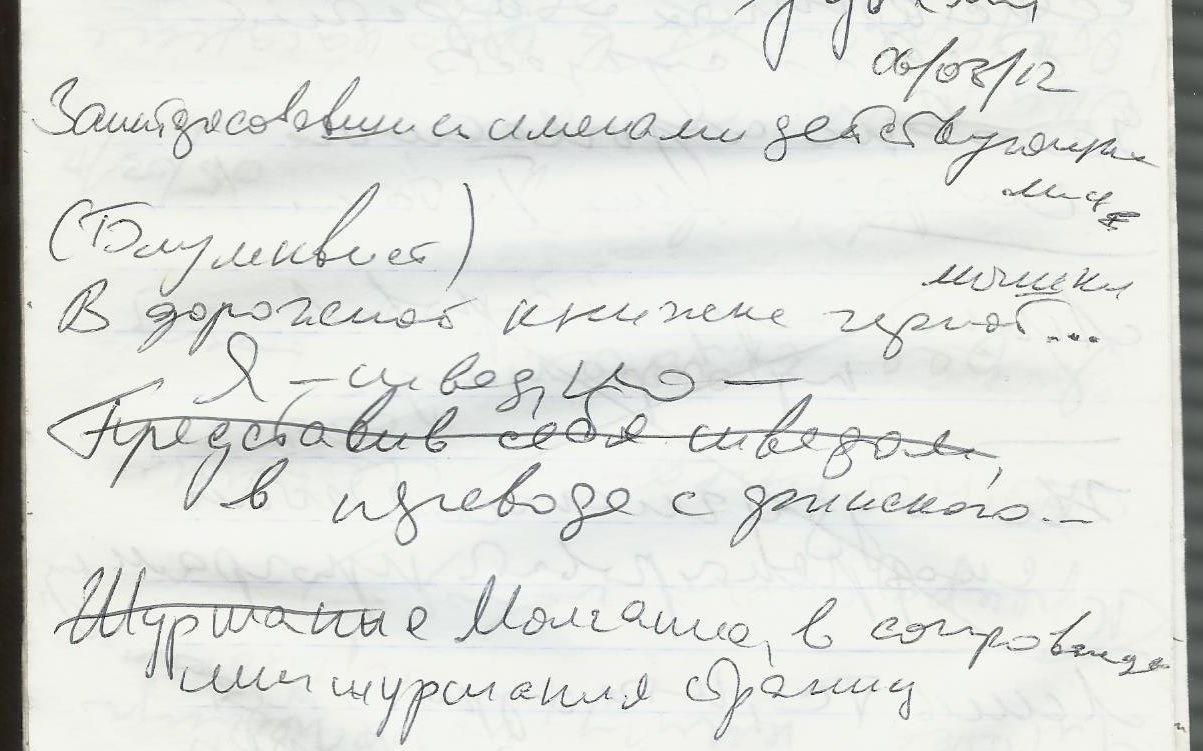 06/03/12
Заинтересовавшись именами действующих
лиц
(Блумквист)
мышки
В дорожной книжке черной...
Я – шведццо –
Представив себя шведом,
в переводе с финского...
Шуршание Молчание, в сопровожде
нии шуршания страниц